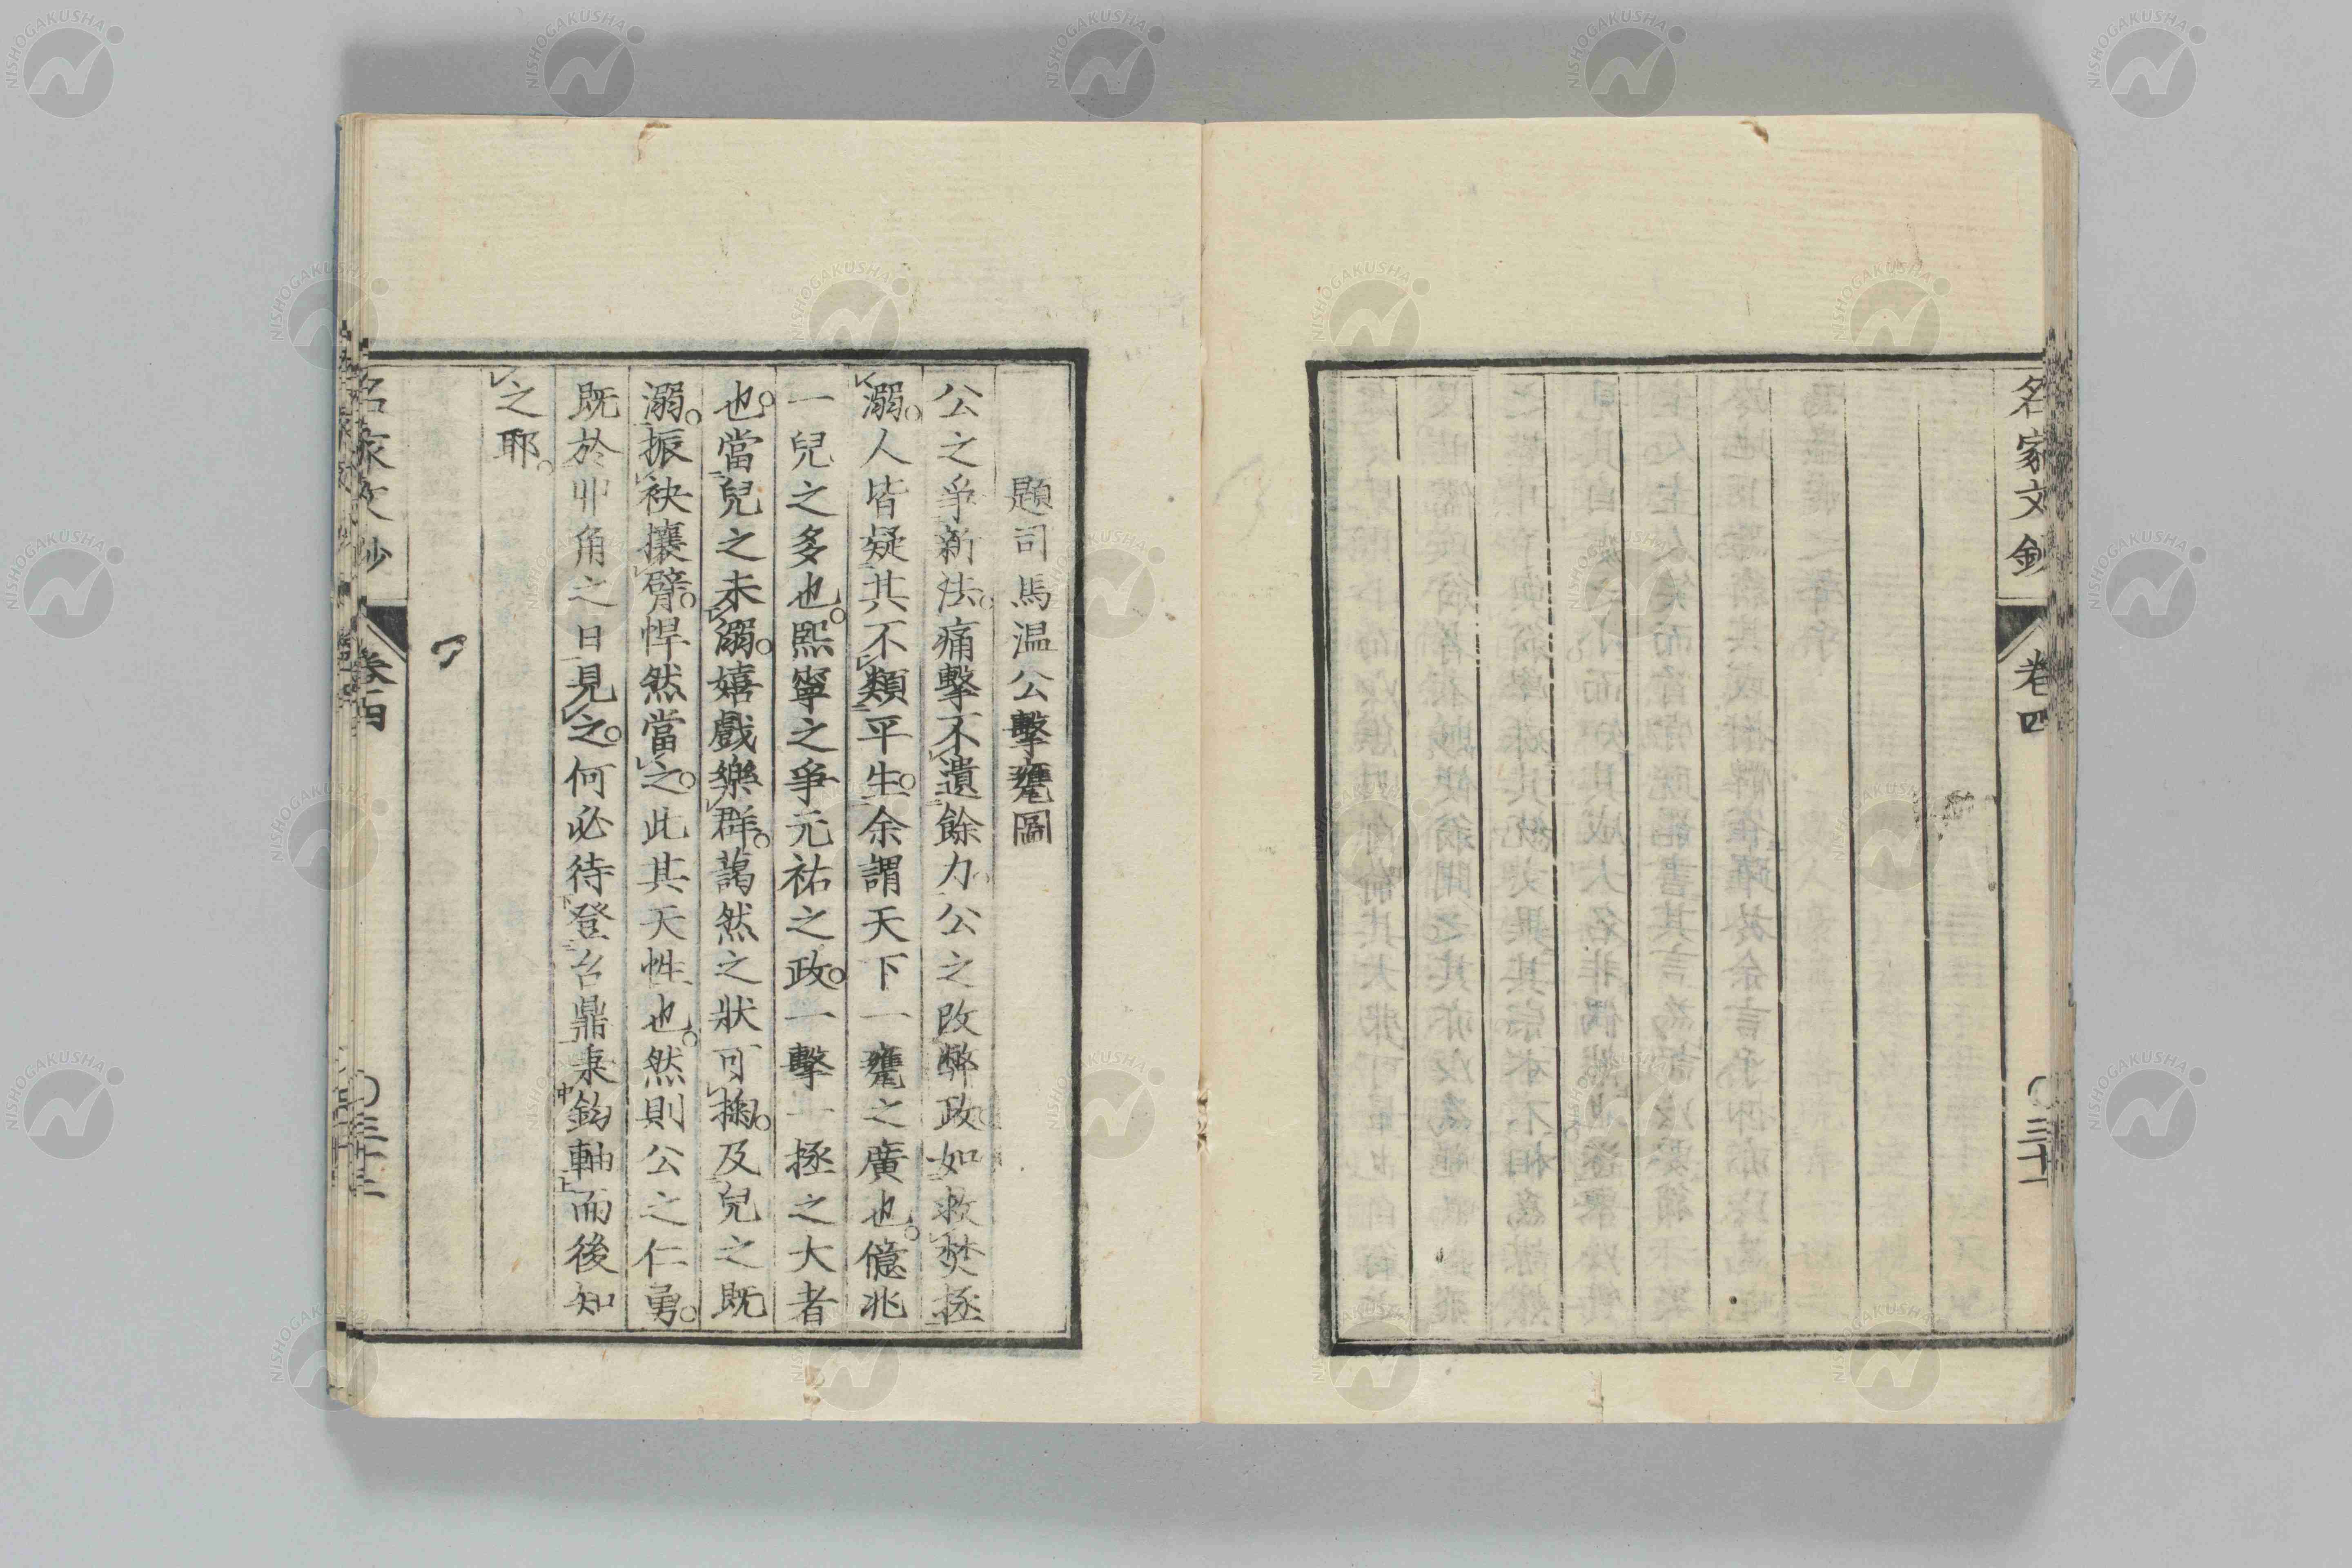 名家文鈔
卷四
〇三十一
題司馬温公擊甕圖
公之爭新法。痛擊不遺餘力。公之改弊政。如救焚拯
溺。人皆疑其不類平生。余謂天下一甕之廣也。億兆
一兒之多也。熙寧之爭元祐之政。一擊一拯之大者
也。當兒之未溺。嬉戲樂群。藹然之狀可掬。及兒之既
溺。振袂攘臂。悍然當之。此其天性也。然則公之仁勇。
既於丱角之日見之。何必待登台鼎秉鈞軸而後知
之耶。
名家文鈔
卷四
NISHOGAKUSHA